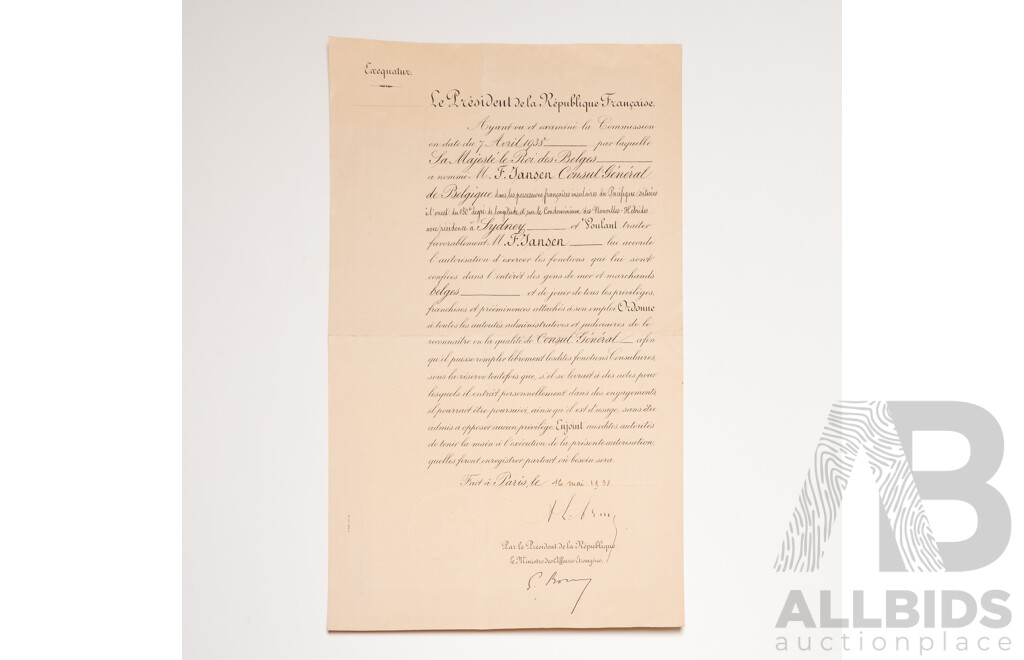 Exequatur.
Le Président de la République Française.
Ayant vu et examiné la Commission
en date du 7 Avril 1938 par laquelle
Sa Majesté le Roi des Belges
a nommé M. F. Jansen Consul Général
de Belgique dans les possessions françaises insulaires du Pacifique situées
à l'ouest du 130e degré de longitude et sur le Condominium des Nouvelles-Hébrides
avec résidence à Sydney, et Voulant traiter
favorablement M. F. Jansen lui accorde
l'autorisation d'exercer les fonctions qui lui sont
confiées dans l'intérêt des gens de mer et marchands
belges et de jouir de tous les privilèges,
franchises et prééminences attachés à son emploi Ordonne
à toutes les autorités administratives et judiciaires de le
reconnaître en la qualité de Consul Général afin
qu'il puisse remplir librement lesdites fonctions Consulaires,
sous la réserve toutefois que, s'il se livrait à des actes pour
lesquels il entrât personnellement dans des engagements
il pourrait être poursuivi, ainsi qu'il est d'usage, sans être
admis à opposer aucun privilège. Enjoint auxdites autorités
de tenir la main à l'exécution de la présente autorisation,
qu'elles feront enregistrer partout où besoin sera
Fait à Paris, le 16 mai 1938
Par le Président de la République
le Ministre des Affaires Étrangères,
AB
ALLBIDS
auctionplace